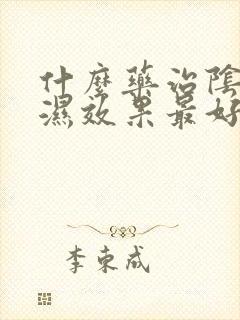 什麼藥治陰
濕效果最好
李東成